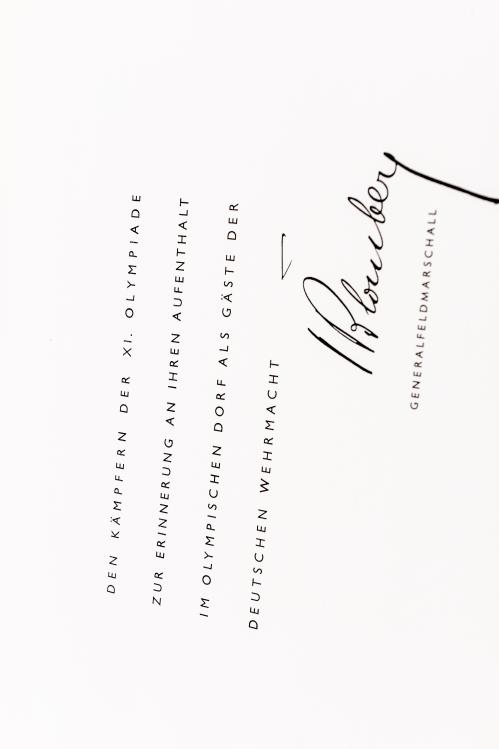 DEN KÄMPFERN DER XI. OLYMPIADE
ZUR ERINNERUNG AN IHREN AUFENTHALT
IM OLYMPISCHEN DORF ALS GÄSTE DER
DEUTSCHEN WEHRMACHT
vBlomberg
GENERALFELDMARSCHALL